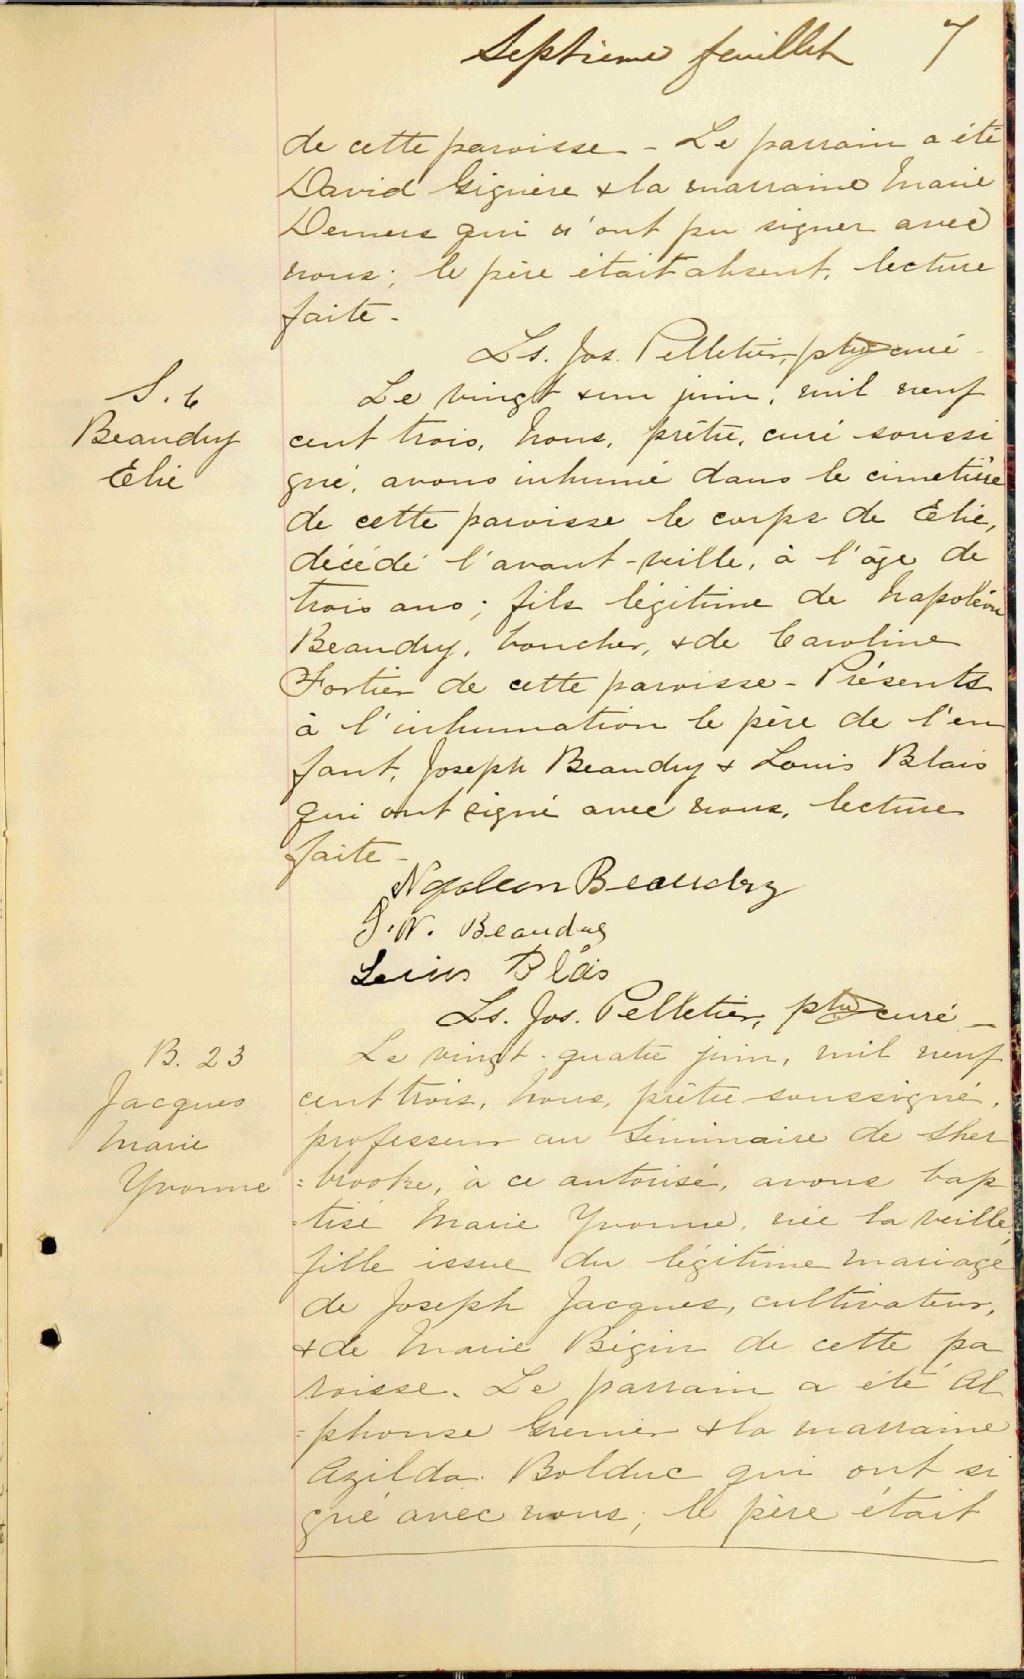 Septieme feuillet 7
de cette paroisse - Le parrain a été
David Giguère & la marraine Marie
Demers qui n'ont pu signer avec
nous; le père était absent, lecture
faite -
Ls. Jos. Pelletier, ptre curé -
S. 6
Beaudry
Elie
Le vingt & un juin, mil neuf
cent trois, Nous, prêtre, curé soussi
gné, avons inhumé dans le cimetière
de cette paroisse le corps de Elie,
décédé l'avant-veille, à l'âge de
trois ans; fils légitime de Napoléon
Beaudry, boucher, & de Caroline
Fortier de cette paroisse - Présents
à l'inhumation le père de l'en
fant, Joseph Beaudry & Louis Blais
qui ont signé avec nous, lecture
faite -
Npoleon Beaudry
J. N. Beaudry
Louis Blais
Ls. Jos. Pelletier, ptre curé -
B. 23
Jacques
Marie
Yvonne
Le vingt-quatre juin, mil neuf
cent trois, Nous, prêtre soussigné,
professeur au Séminaire de Sher
=brooke, à ce autorisé, avons bap
-tisé Marie Yvonne, née la veille,
fille issue du légitime mariage
de Joseph Jacques, cultivateur,
& de Marie Bégin de cette pa
roisse. Le parrain a été Al
=phonse Grenier & la marraine
Azilda Bolduc qui ont si
gné avec nous; le père était